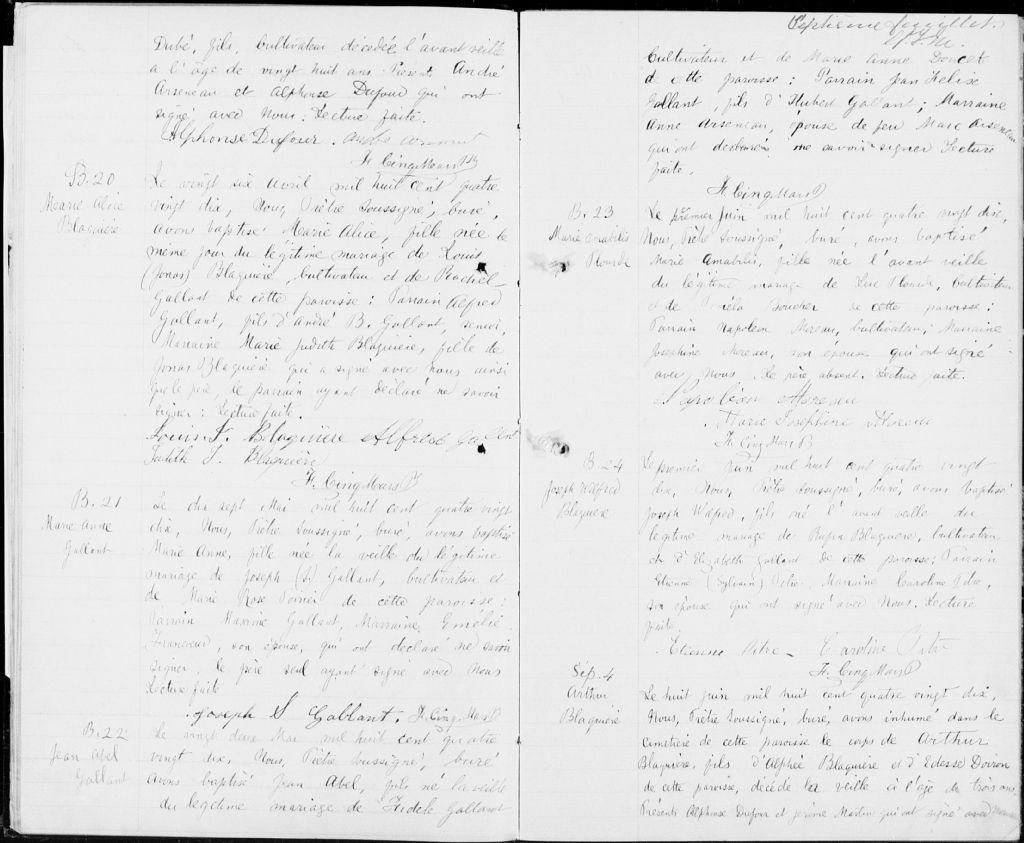 Dubé, fils, Cultivateur décédée l'avant veille
a l'âge de vingt huit ans. Présents André
Arseneau et Alphonse Dufour qui ont
signé avec Nous. Lecture faite.
Alphonse Dufour.
F. Cinq-Mars Ptr
B. 20
Marie Alice
Blaquière
Le vingt six avril mil huit cent quatre
vingt dix, Nous, Prêtre soussigné, curé,
avons baptisé Marie Alice, fille née le
même jour du légitime mariage de Louis
(Jonas) Blaquière, cultivateur et de Rachel
Gallant de cette paroisse: Parrain Alfred
Gallant, fils d'André B. Gallant, senior,
Marraine Marie Judith Blaquière, fille de
Jonas Blaquière qui a signé avec nous ainsi
que le père, le parrain ayant déclaré ne savoir
signer: Lecture faite.
Louis J. Blaquière Alfred Gallant
Judith J. Blaquière
F. Cinq-Mars P
B. 21
Marie Anne
Gallant
Le dix sept Mai mil huit cent quatre vingt
dix, Nous, Prêtre soussigné, curé, avons baptisé
Marie Anne, fille née la veille du légitime
mariage de Joseph (S.) Gallant, cultivateur et
de Marie Rose Poirier de cette paroisse:
Parrain Maxime Gallant, Marraine Emélie
Francoeur, son épouse, qui ont déclaré ne savoir
signer, le père seul ayant signé avec Nous
Lecture faite
Joseph S Gallant. F. Cinq-Mars P
B. 22
Jean Abel
Gallant
Le vingt deux Mai mil huit cent quatre
vingt dix, Nous, Prêtre soussigné, curé
avons baptisé Jean Abel, fils né la veille
du légitime mariage de Fidèle Gallant
Septième feuillet.
Cultivateur et de Marie Anne Doucet
de cette paroisse: Parrain Jean Felise
Gallant, fils d'Hubert Gallant; Marraine
Anne Arseneau, épouse de feu Marc Arseneau
qui ont déclaré ne savoir signer Lecture
faite.
F. Cinq-Mars P
B. 23
Marie Amabilis
Plourde
Le premier juin mil huit cent quatre vingt dix,
Nous, Prêtre soussigné, curé, avons baptisé
Marie Amabilis, fille née l'avant veille
du légitime mariage de Luc Plourde, Cultivateur
et de Boucher de cette paroisse:
Parrain Napoléon Moreau, Cultivateur; Marraine
Josephine Moreau, son épouse qui ont signé
avec Nous, le père absent. Lecture faite.
Napoléon Moreau
Marie Josephine Moreau
F. Cinq-Mars P
B. 24
Joseph Wilfred
Blaquière
Le premier Juin mil huit cent quatre vingt
dix, Nous, Prêtre soussigné, curé, avons baptisé
Joseph Wilfred, fils né l'avant veille du
légitime mariage de Rufin Blaquière, Cultivateur
et d'Elizabeth Gallant de cette paroisse: Parrain
Etienne (Sylvain) Pitre, Marraine Caroline Pitre,
son épouse qui ont signé avec Nous. Lecture
faite.
Etienne Pitre Caroline Pitre
F. Cinq-Mars P
Sép. 4
Arthur
Blaquière
Le huit juin mil huit cent quatre vingt dix,
Nous, Prêtre soussigné, curé, avons inhumé dans le
cimetière de cette paroisse le corps de Arthur
Blaquière, fils d'Alphée Blaquière et d'Edesse Doiron
de cette paroisse, décédé la veille à l'âge de trois ans.
Présents Alphonse Dufour et Jérémie Martin qui ont signé avec Nous